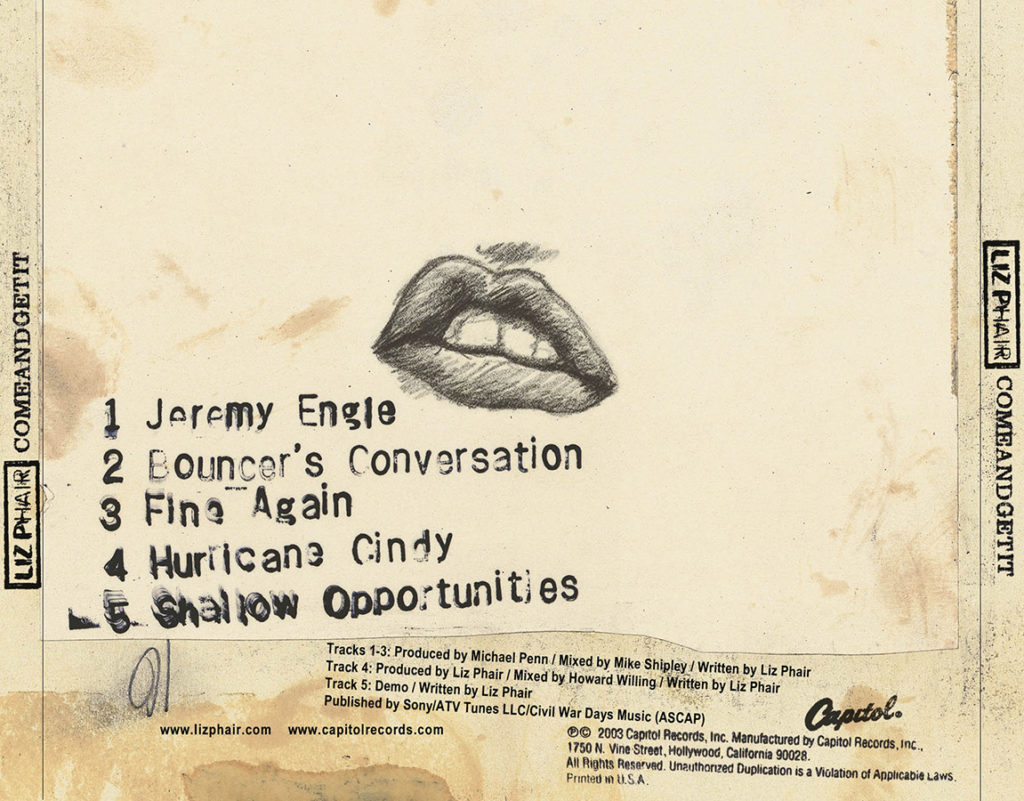 LIZ PHAIR COMEANDGETIT
1 Jeremy Engle
2 Bouncer's Conversation
3 Fine Again
4 Hurricane Cindy
5 Shallow Opportunities
Tracks 1-3: Produced by Michael Penn / Mixed by Mike Shipley / Written by Liz Phair
Track 4: Produced by Liz Phair / Mixed by Howard Willing / Written by Liz Phair
Track 5: Demo / Written by Liz Phair
Published by Sony/ATV Tunes LLC/Civil War Days Music (ASCAP)
www.lizphair.com www.capitolrecords.com
Capitol.
℗© 2003 Capitol Records, Inc. Manufactured by Capitol Records, Inc.,
1750 N. Vine Street, Hollywood, California 90028.
All Rights Reserved. Unauthorized Duplication is a Violation of Applicable Laws.
Printed in U.S.A.
LIZ PHAIR COMEANDGETIT